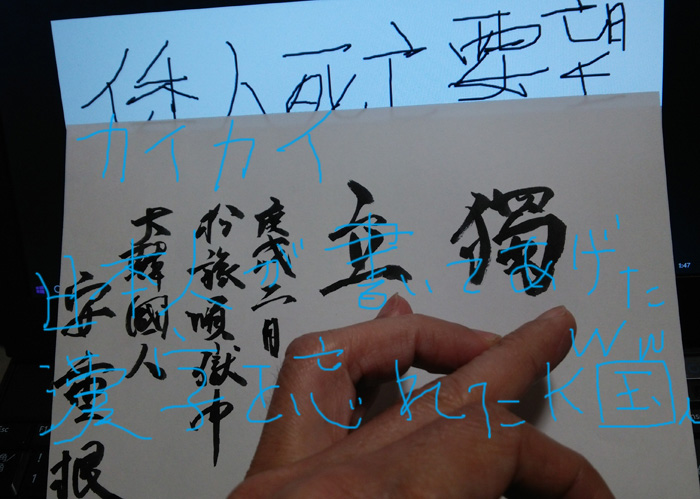 人死亡要望
カイカイ
人が書いてあげた
漢字を忘れたK国ww
獨立
庚戌二月
於旅順獄中
大韓國人
安重根
1:47
Esc